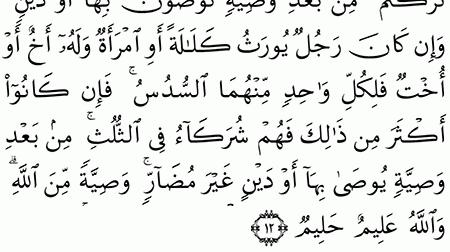 تَرَكْتُم ۚ مِّنۢ بَعْدِ وَصِيَّةٍ تُوصُونَ بِهَآ أَوْ دَيْنٍ ۗ
وَإِن كَانَ رَجُلٌ يُورَثُ كَلَـٰلَةً أَوِ ٱمْرَأَةٌ وَلَهُۥٓ أَخٌ أَوْ
أُخْتٌ فَلِكُلِّ وَٰحِدٍ مِّنْهُمَا ٱلسُّدُسُ ۚ فَإِن كَانُوٓا۟
أَكْثَرَ مِن ذَٰلِكَ فَهُمْ شُرَكَآءُ فِى ٱلثُّلُثِ ۚ مِنۢ بَعْدِ
وَصِيَّةٍ يُوصَىٰ بِهَآ أَوْ دَيْنٍ غَيْرَ مُضَآرٍّ ۚ وَصِيَّةً مِّنَ ٱللَّهِ ۗ
وَٱللَّهُ عَلِيمٌ حَلِيمٌ ﴿١٢﴾